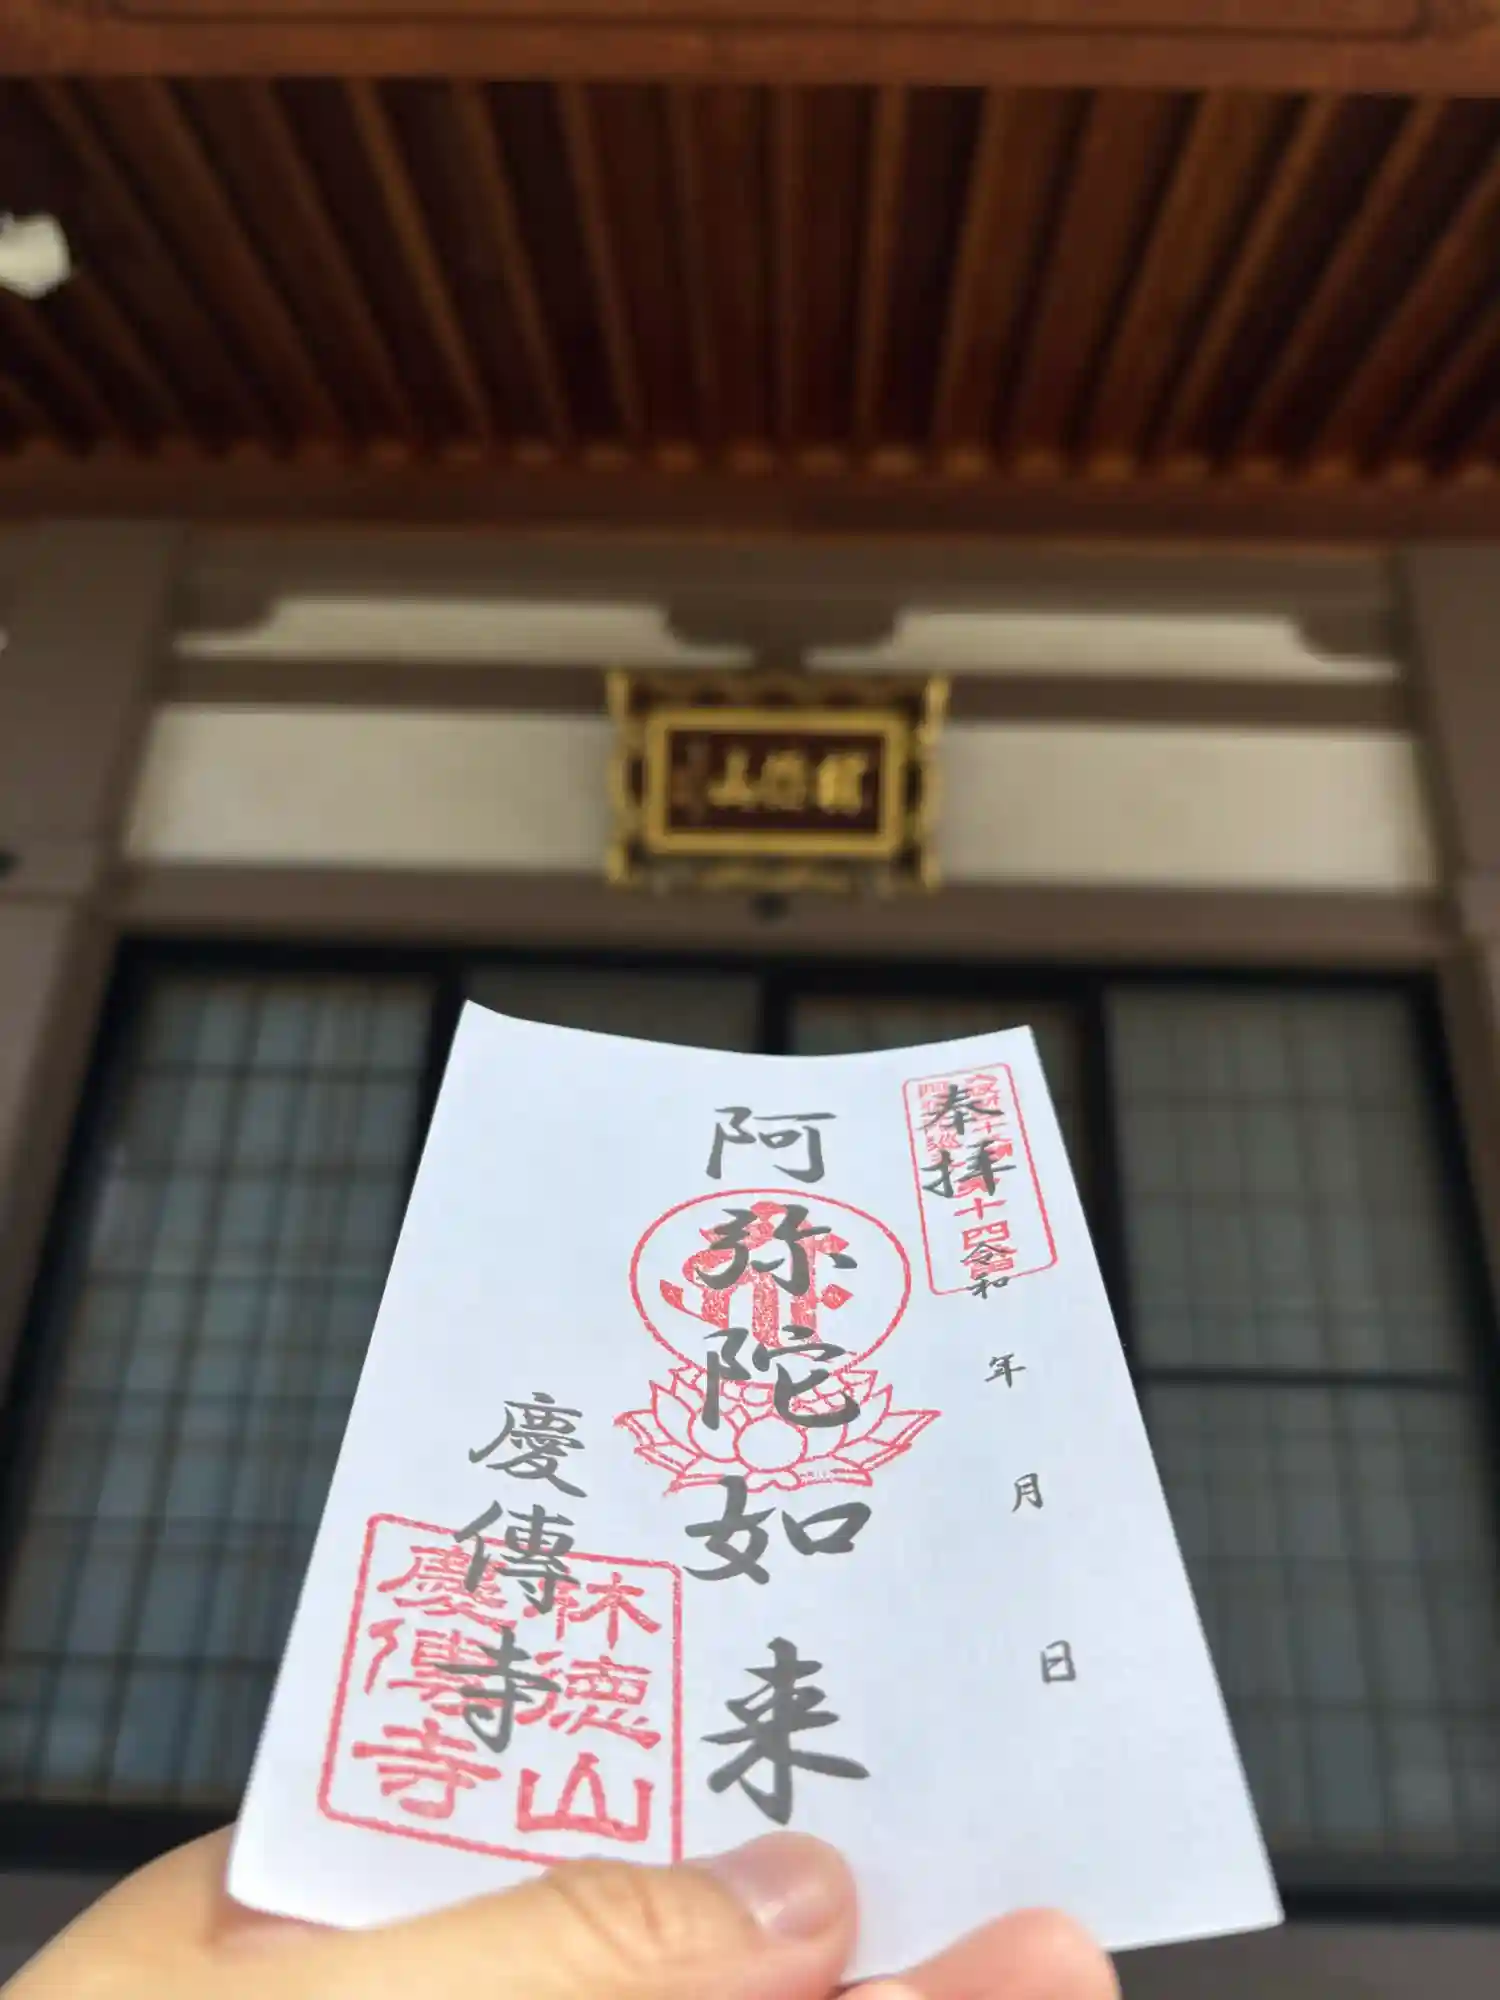 奉拝
令和 年 月 日
阿弥陀如来
慶傳寺
林徳山
慶傳寺